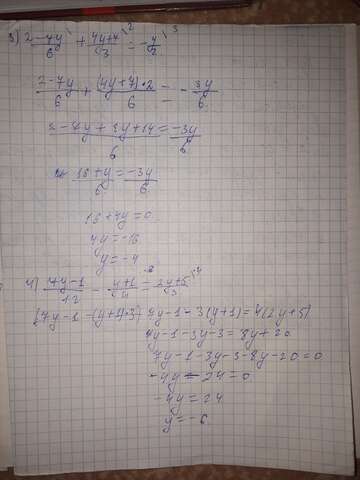 3) (2-7y)/6 + (4y+7)/3 \2 = -y/2 \3
(2-7y)/6 + ((4y+7)·2)/6 = -3y/6
(2-7y+8y+14)/6 = -3y/6
(16+y)/6 = -3y/6
16+4y=0
4y=-16
y=-4
4) (7y-1)/12 - (y+1)/4 \3 = (2y+5)/3 \4
(7y-1-(y+1)·3) 7y-1-3(y+1)=4(2y+5)
7y-1-3y-3=8y+20
7y-1-3y-3-8y-20=0
-4y-24=0
-4y=24
y=-6